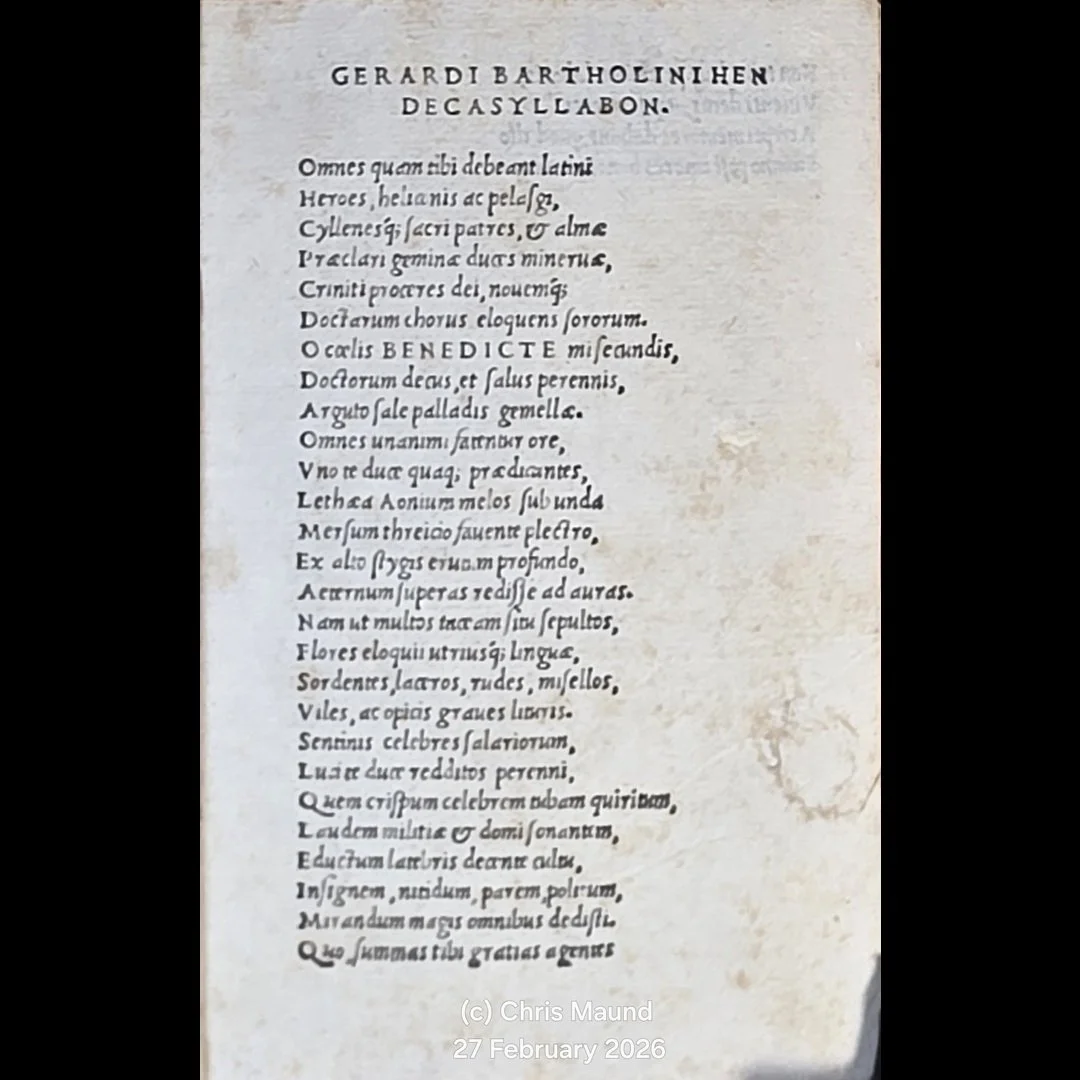 GERARDI BARTHOLINI HEN
DECASYLLABON.
Omnes quam tibi debeant latini
Heroes, helianis ac pelaſgi,
Cylleneſq́; ſacri patres, & almæ
Præclari geminæ duces mineruæ,
Criniti proceres dei, nouemq́;
Doctarum chorus eloquens ſororum.
O cœlis BENEDICTE mi ſecundis,
Doctorum decus, et ſalus perennis,
Arguto ſale palladis gemellæ.
Omnes unanimi fatentur ore,
Vno te duce quaq; prædicantes,
Lethæa Aonium melos ſub unda
Merſum threicio fauente plectro,
Ex alto ſtygis eruum profundo,
Aeternum ſuperas rediſſe ad auras.
Nam ut multos taceam ſitu ſepultos,
Flores eloquii utriuſq́; linguæ,
Sordentes, laceros, rudes, miſellos,
Viles, ac opicis graues lituris.
Sentinis celebres ſalariorum,
Luci te duce redditos perenni,
Quem criſpum celebrem tubam quiritum,
Laudem militiæ & domi ſonantem,
Eductum latebris decente cultu,
Inſignem, nitidum, parem, politum,
Mirandum magis omnibus dediſti.
Quo ſummas tibi gratias agentes
(c) Chris Maund
27 February 2026